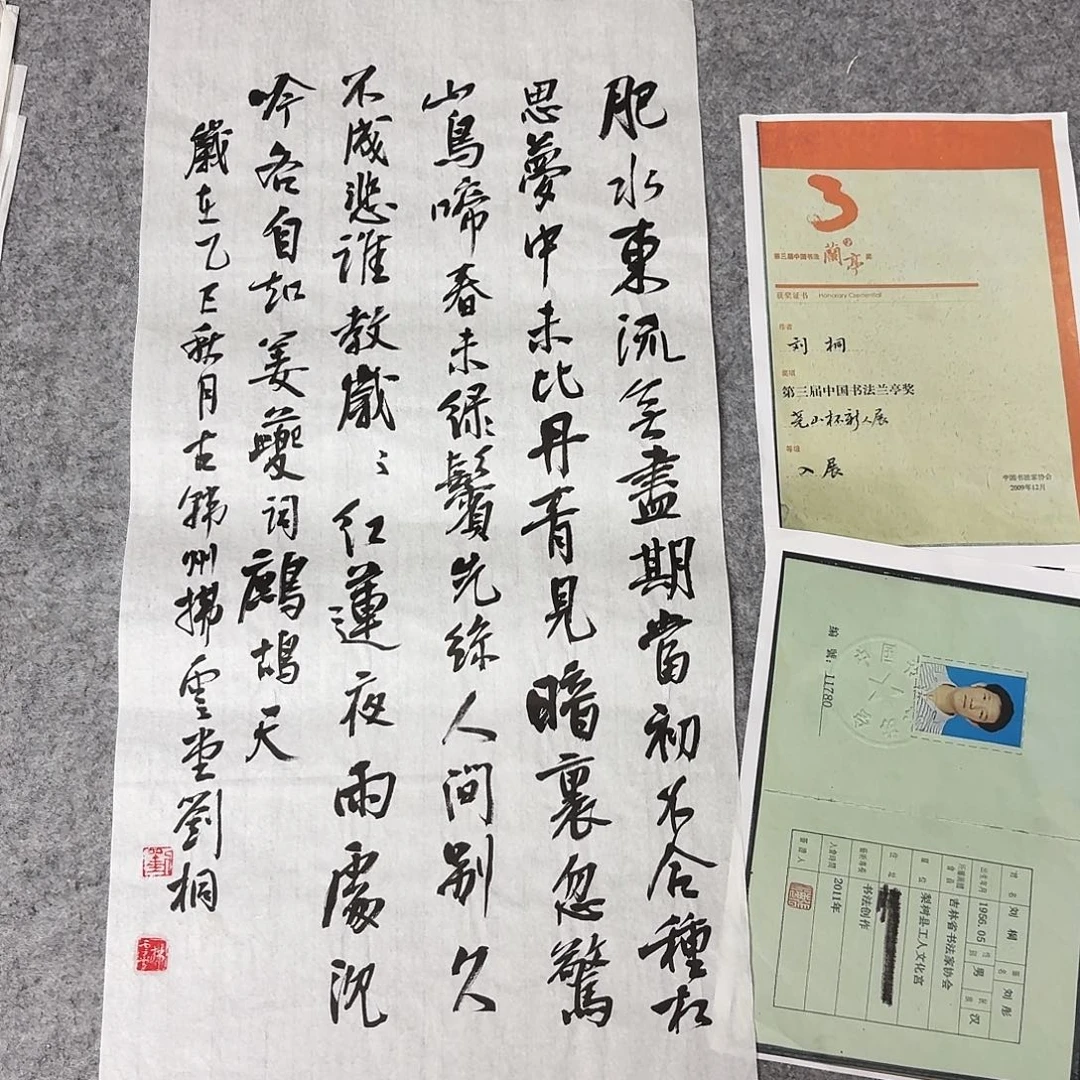 肥水東流無盡期當初不合種相
思夢中未比丹青見暗裏忽驚
山鳥啼春未綠鬢先絲人間别久
不成悲誰教歲〻紅蓮夜兩處沈
吟各自知姜夔词鷓鴣天
歲在乙巳秋月古韩州拂雲堂劉桐
第三届中国书法 蘭亭 奖
获奖证书 Honorary Credential
作者
刘 桐
奖项
第三届中国书法兰亭奖
尧山杯新人展
等级
入展
中国书法家协会
2009年12月
编號：11780
姓名 刘 桐 筆名 刘彤
出生年月 1956.05 性别 男 民族 汉
所屬團體會員 吉林省书法家协会
單位 梨树县工人文化宫
住址
藝術專長 书法创作
入會時間 2011年
簽證人